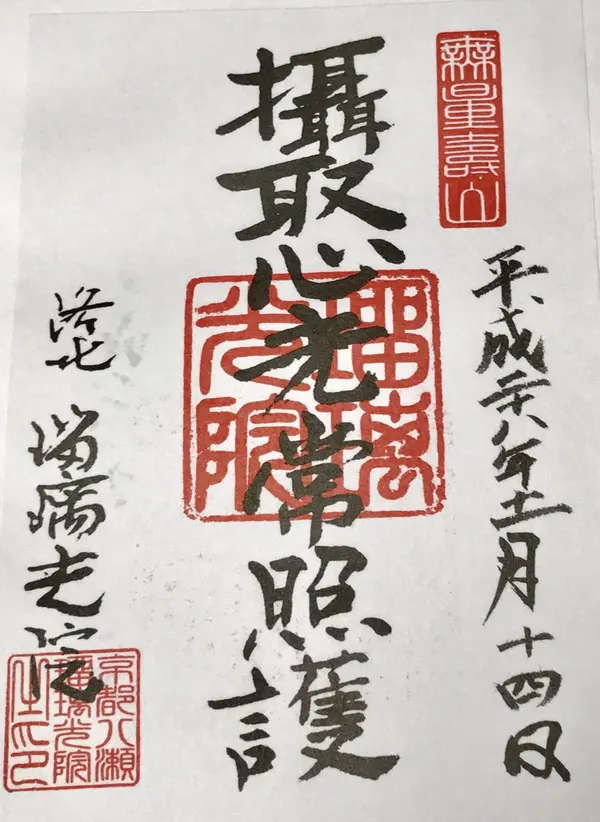 無量壽山
平成二十八年十一月十四日
攝取心光常照護
瑠璃
光院
洛北 瑠璃光院
京都八瀬
瑠璃光院
之印